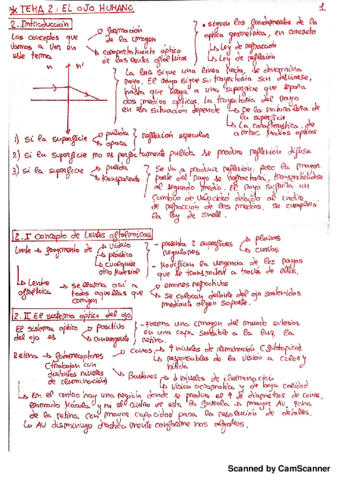 * TEMA 2: EL OJO HUMANO
1
2. Introducción
Los conceptos que vamos a ver en este tema
formación de la imagen
comportamiento óptico de las lentes oftálmicas
siguen los fundamentos de la óptica geométrica, en concreto
Ley de refracción
Ley de reflexión
n n'
La luz sigue una línea recta, se denomina
rayo. El rayo sigue su trayectoria sin desviarse,
hasta que llega a una superficie que separa
dos medios ópticos. La trayectoria del rayo
en esa situación depende
de la naturaleza de la superficie
La característica de ambos medios ópticos
1) si la superficie
pulida
opaca
reflexión especular
2) si la superficie no es perfectamente pulida se produce reflexión difusa
3) si la superficie
pulida
transparente
se va a producir reflexión, pero la mayor
parte del rayo se refractaría, transmitiéndose
al segundo medio. El rayo sufriría un
cambio de velocidad debido al índice
de refracción de los medios, se cumpliría
la ley de Snell.
2.I concepto de Lentes oftálmicas
Lente
fragmento de
vidrio
plástico
cualquier otro material
presenta 2 superficies regulares
planas
curvas
modifican la vergencia de los rayos
que se transmiten a través de ellas.
Lente oftálmica
se llama así a todas aquellas que corrigen
errores refractivos
se colocan delante del ojo sostenidas
mediante algún soporte.
2.II EP sistema óptico del ojo
EP sistema óptico del ojo es
positivo
convergente
Forma una imagen del mundo exterior
en una capa sensible a la luz, la
retina.
Retina
Fotorreceptores
(trabajan con distintos niveles de iluminación)
Conos
↑ niveles de iluminación (fotópica)
responsables de la visión a color y nítida
Bastones
↓ niveles de iluminación
visión acromática y de baja calidad
En el centro hay una región donde se produce el
de conos,
llamada Mácula, y en el centro de esta la fóvea
mayor AV. Zona
de la retina con mayor capacidad para la resolución de detalles.
La AV disminuye drásticamente conforme nos alejamos.
Scanned by CamScanner